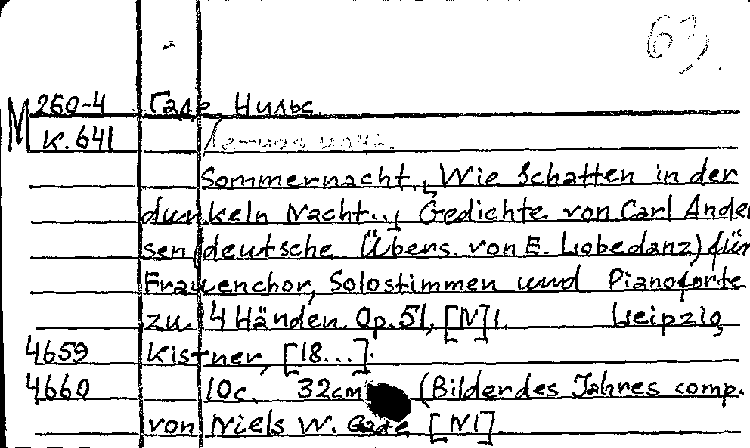 63
260-4 Гаде Нильс.
M к. 641 Летняя ночь.
Sommernacht, „Wie Schatten in der
dunkeln Nacht..„ Gedichte von Carl Ander
sen (deutsche Übers. von E. Lobedanz) für
Frauenchor, Solostimmen und Pianoforte
zu 4 Händen. Op. 51, [N] 1. Leipzig
4659 Kistner, [18...].
4660 10c. 32cm (Bilder des Jahres comp.
von Niels W. Gade [N1]